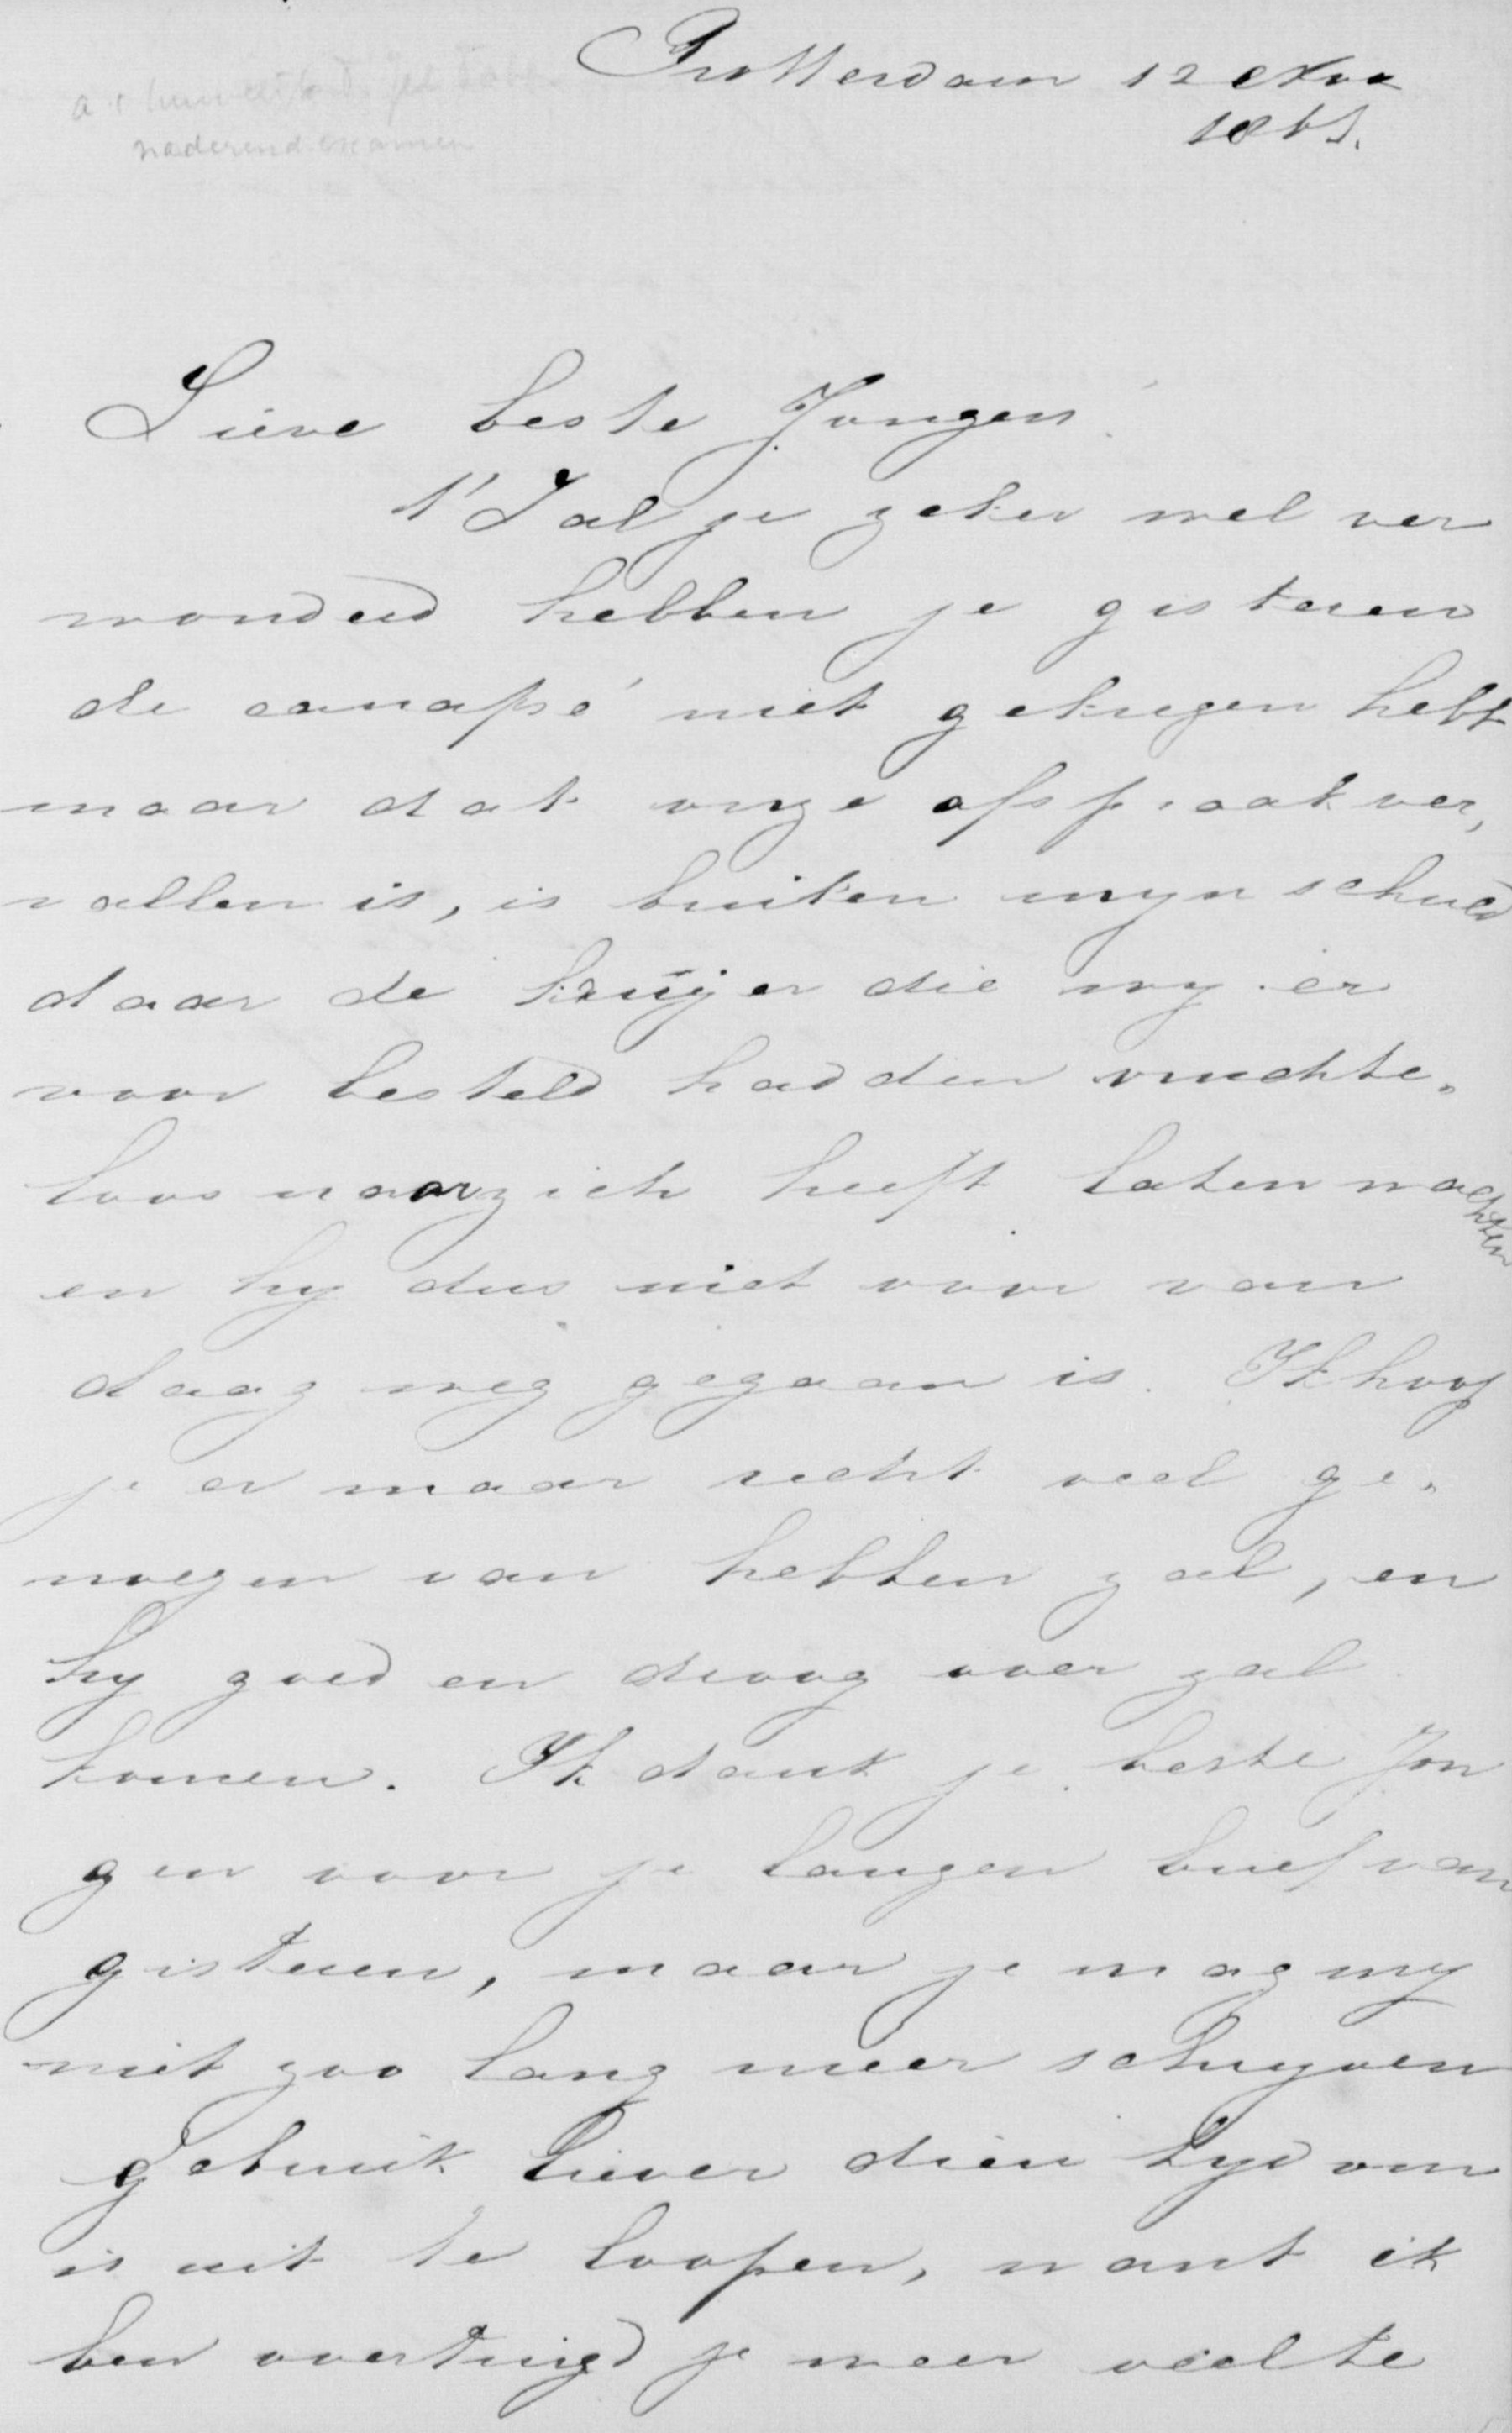 Rotterdam 12 Nov
1861.
naderend examen
Lieve beste Jongen!
't Zal je zeker wel ver
wonderd hebben je gisteren
de canapé niet gekregen hebt
maar dat onze afspraak ver,
vallen is, is buiten myn schuld
daar de kruijer die wy er
voor besteld hadden vruchte„
loos naar zich heeft laten wachten
en hy dus niet voor van
daag weg gegaan is. Ik hoop
je er maar recht veel ge„
noegen van hebben zal, en
hy goed en droog over zal
komen. Ik dank je beste Jon
gen voor je langen brief van
gisteren, maar je mag my
niet zoo lang meer schryven
gebruik liever dien tyd om
is uit te loopen, want ik
ben overtuigd je weer veel te